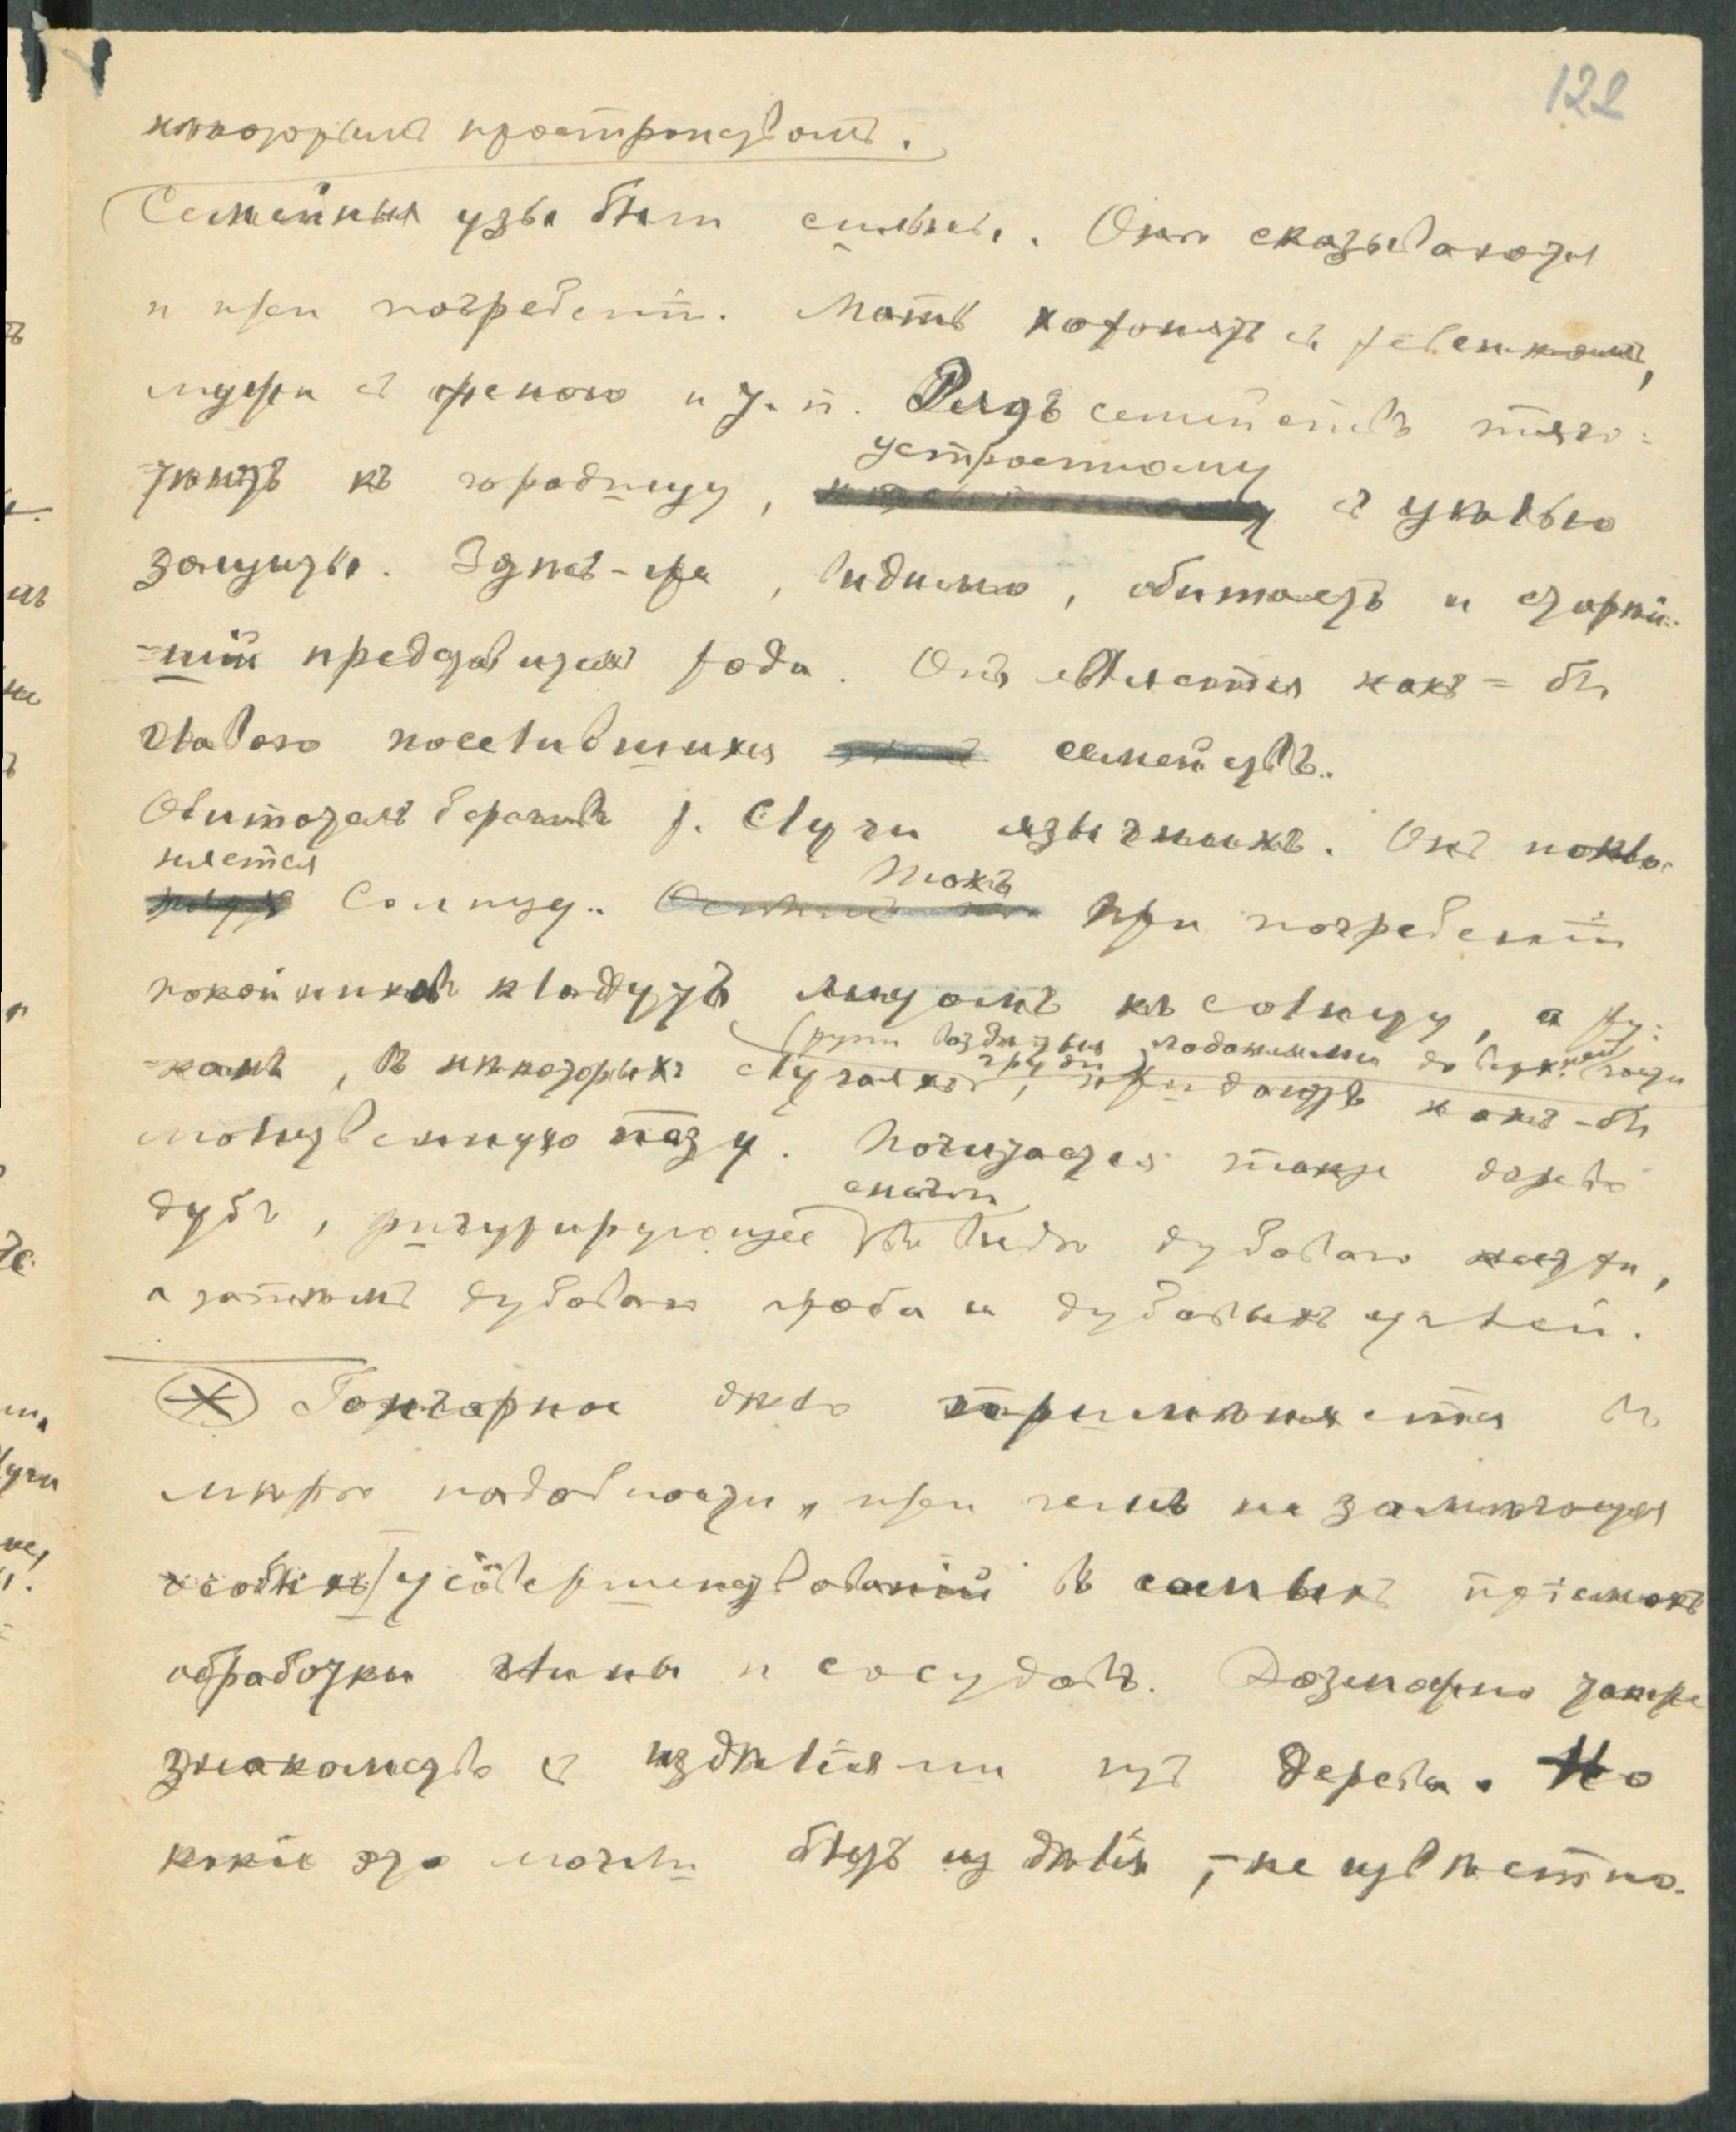 122
нѣкоторымъ пространствомъ.
Семейныя узы были сильны. Онѣ сказываются
и при погребеніи. Мать хоронятъ съ ребенкомъ,
мужа съ женою и т. п. Рядъ семействъ тяго=
=тѣютъ къ городищу, устроенному съ цѣлью
защиты. Здѣсь-же, видимо, обитаетъ и старѣй=
=шій представитель рода. Онъ является какъ=бы
главою поселившихся семействъ.
Обитатель береговъ р. Случи язычникъ. Онъ покло=
няется Солнцу. Такъ при погребеніи
покойниковъ кладутъ лицомъ къ солнцу, а ру=
(руки воздѣты ладонями до верхней части
груди)
=камъ, въ нѣкоторыхъ случаяхъ, придаютъ какъ-бы
молитвенную позу. Почитается также дерево
дубъ, фигурирующее сначала въ видѣ дубоваго костра,
а затѣмъ дубоваго гроба и дубовыхъ углей.
Гончарное дѣло примѣняется въ
мѣру надобности, при чемъ не замѣчается
особыхъ усовершенствованій въ самыхъ пріемахъ
обработки глины и сосудовъ. Возможно также
знакомство съ издѣліями изъ дерева. Но
какіе это могли быть издѣлія, - не извѣстно.